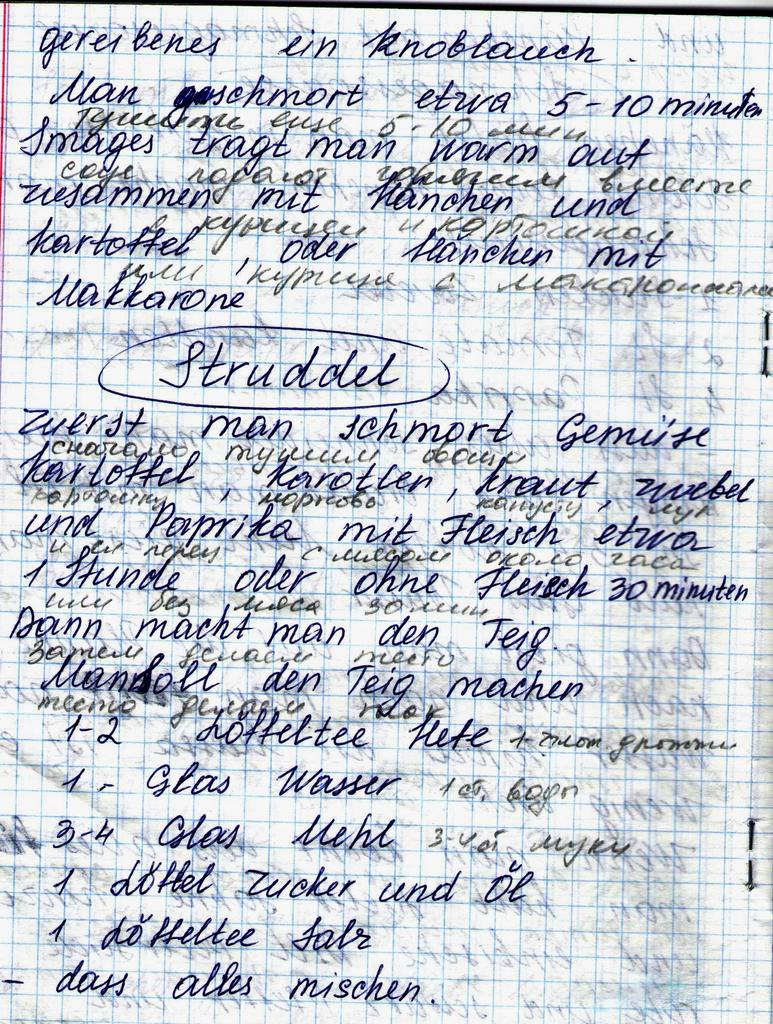 gereibenes ein Knoblauch.
Man schmort etwa 5-10 minuten
тушить еще 5-10 мин
Smages trägt man warm auf
соус подают горячим вместе
zusammen mit Hänchen und
с курицей и картошкой
Kartoffel, oder Hänchen mit
или курица с макаронами
Makkarone
Struddel
zuerst man schmort Gemüse
сначала тушим овощи
Kartoffel, Karotten, Kraut, zwebel
картошку, морковь капусту лук
und Paprika mit Fleisch etwa
перец с мясом около часа
1 Stunde oder ohne Fleisch 30 minuten
или без мяса 30 мин
Dann macht man den Teig.
Затем делаем тесто
Man soll den Teig machen
тесто делаем так
1-2 Löffeltee Hefe 1 дрожжи
1 - Glas Wasser 1 ст. воды
3-4 Glas Mehl 3-4 ст муки
1 Löffel Zucker und Öl
1 Löffeltee Salz
- dass alles mischen.